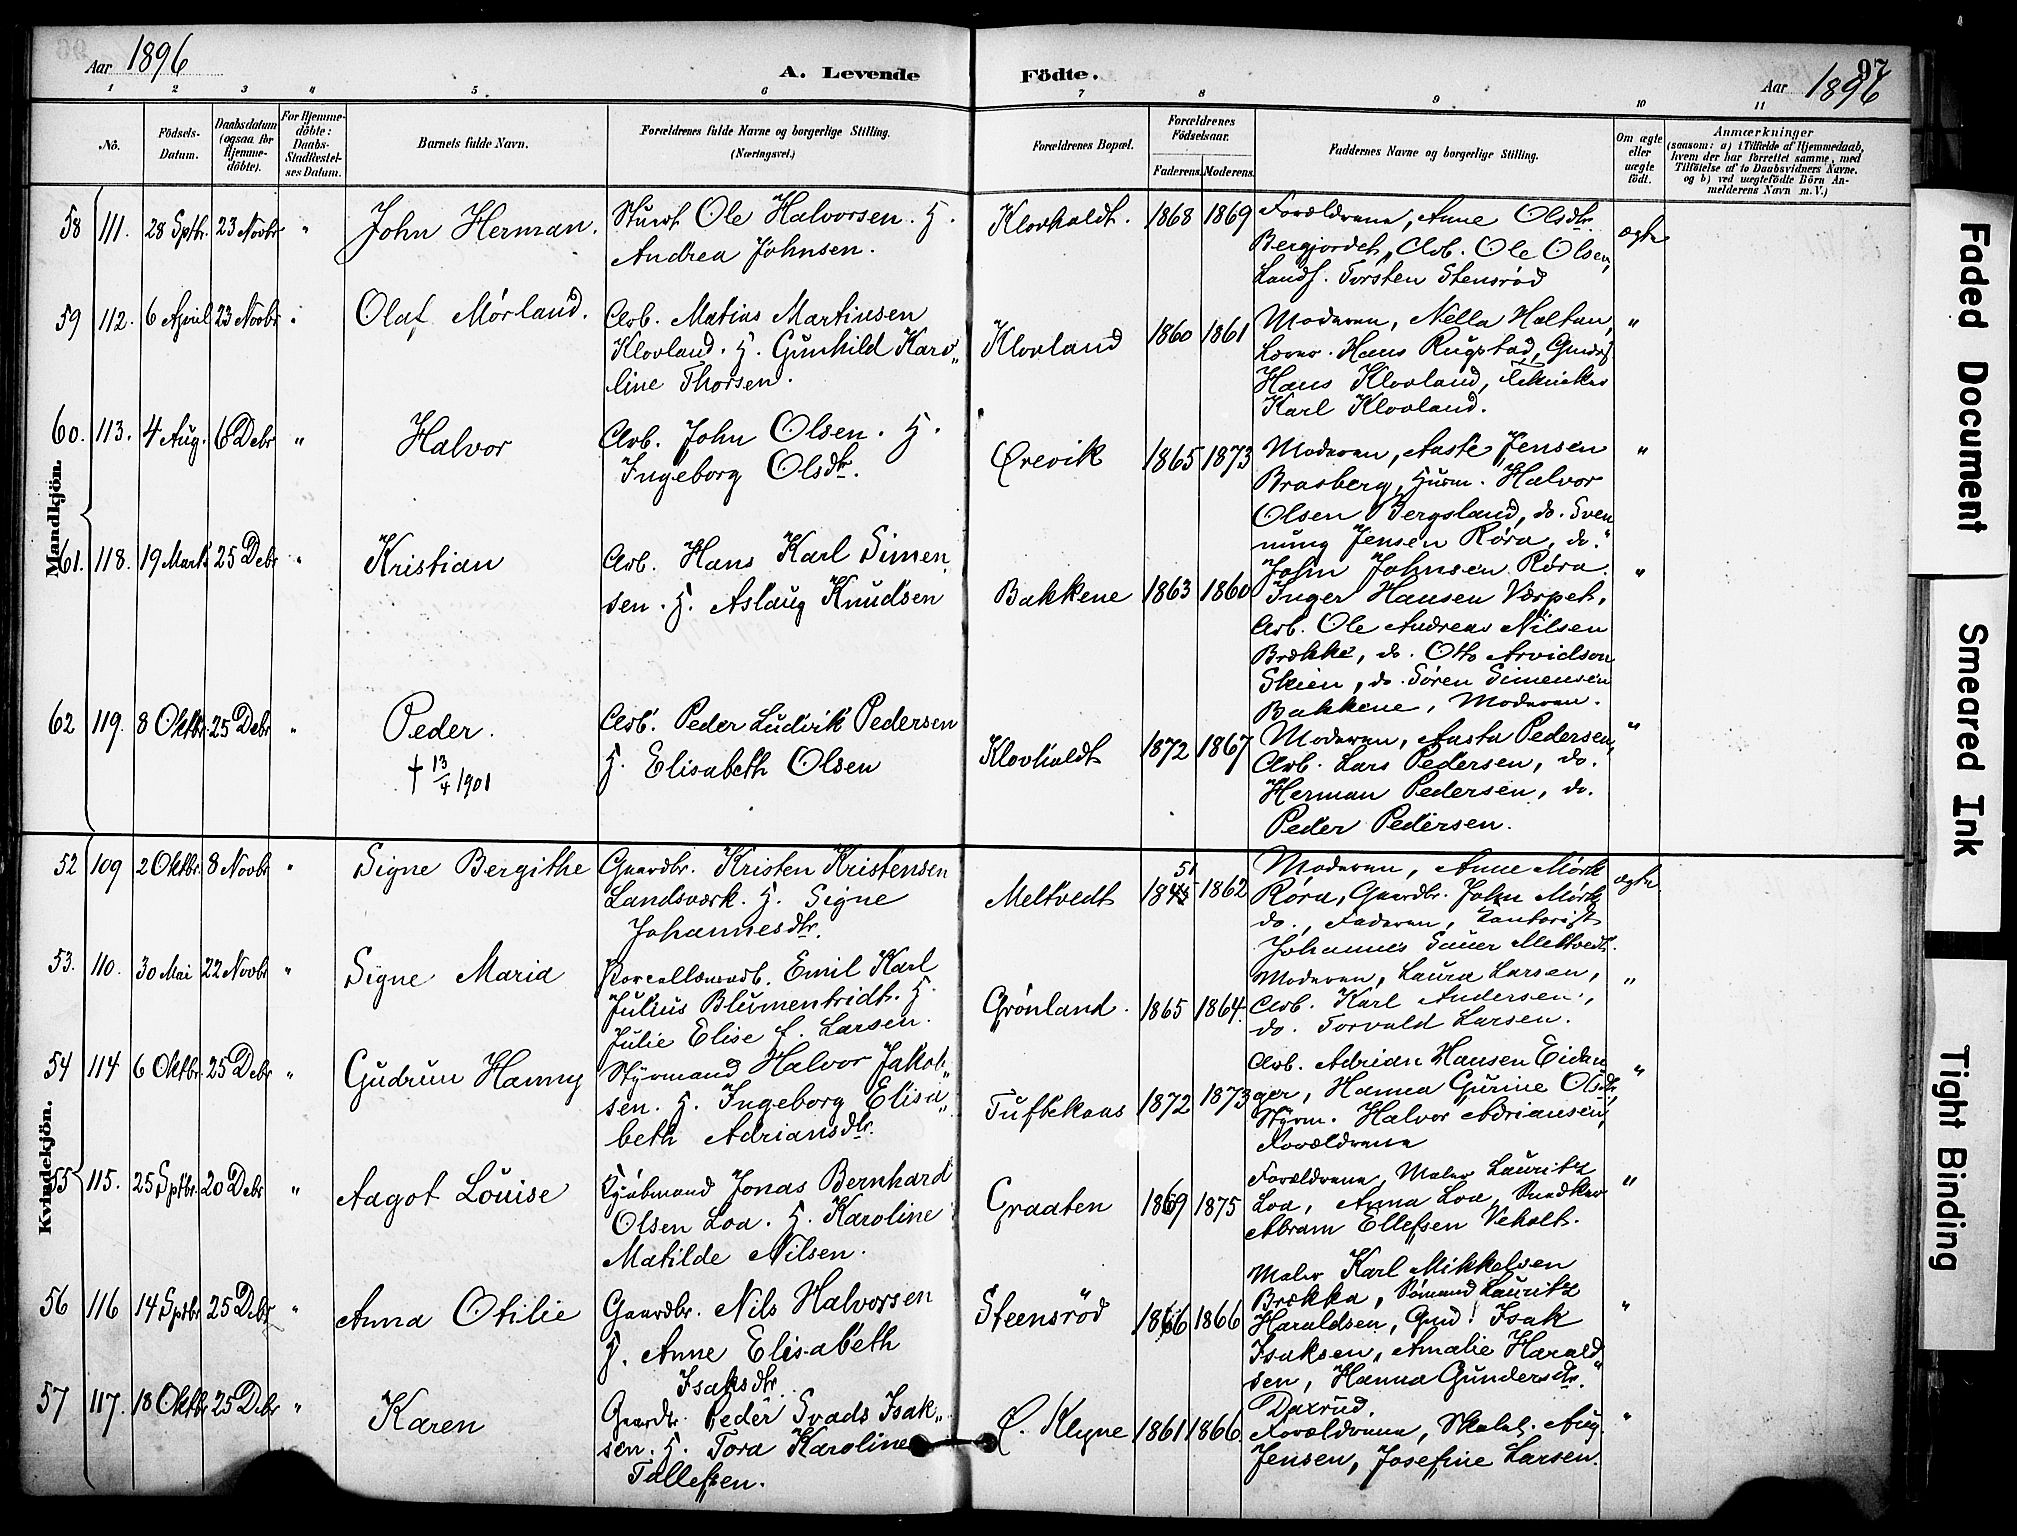 Aar 1896
A. Levende Födte.
97
Aar 1896
1 2 3 4 5 6 7 8 9 10 11
Nô.
Födsels-Datum.
Daabsdatum (ogsaa for Hjemmedöbte).
For Hjemmedöbte: Daabs-Stadfæstelses Datum.
Barnets fulde Navn.
Forældrenes fulde Navne og borgerlige Stilling. (Næringsvei.)
Forældrenes Bopæl.
Forældrenes Födselsaar.
Faderens. Moderens.
Faddernes Navne og borgerlige Stilling.
Om ægte eller uægte födt.
Anmærkninger
(saasom: a) i Tilfælde af Hjemmedaab, hvem der har forrettet samme, med Tilföielse af to Daabsvidners Navne. og b) ved uægtefödte Börn Anmelderens Navn m. V.)
Mandkjön.
58 111. 28 Sptbr. 23 Novbr " John Herman.
Ole Halvorsen. H.
Andrea Johnsen.
Klovholdt. 1868 1869
Forældrene, Anne Olsdtr.
Bergjordet, Arb. Ole Olsen,
Torsten Stensrød
ægte
59 112. 6 April 23 Novbr " Olaf Mørland.
Arb. Matias Martinsen
Klovland. H. Gunhild Karo„
line Thorsen.
Klovland 1860 1861
Moderen, Nella Haltan,
Hans Rugstad,
Hans Klovland, Tekniker
Karl Klovland.
"
60. 113. 4 Aug. 6 Debr " Halvor
Arb. John Olsen. H.
Ingeborg Olsdtr.
Ørevik 1865 1873
Moderen, Aaste Jensen
Brasberg, Husm. Halvor
Olsen Bergsland, do. Sven
nung Jensen Røra, do.
John Johnsen Røra.
"
61. 118. 19 Marts 25 Debr " Kristian
Arb. Hans Karl Simen
sen. H. Aslaug Knudsen
Bakkene 1863 1860
Inger Hansen Værpet,
Arb. Ole Andreas Nilsen
Brække, do. Otto Arvidson
Skien, do. Søren Simensen
Bakkene, Moderen.
"
62 119. 8 Oktbr. 25 Debr " Peder.
† 13/4 1901
Arb. Peder Ludvik Pedersen
H. Elisabeth Olsen
Klovholdt 1872 1867
Moderen, Aasta Pedersen,
Arb. Lars Pedersen, do.
Herman Pedersen, do.
Peder Pedersen.
"
Kvindekjön.
52 109 2 Oktbr. 8 Novbr " Signe Bergithe
Gaardbr. Kristen Kristensen
Landsværk. H. Signe
Johannesdtr.
Meltvedt 51 1845 1862
Moderen, Anne Mørk
Røra, Gaardbr. John Mørk
do., Faderen, Kontorist
Johannes Sauer Meltvedt.
ægte
53. 110. 30 Mai 22 Novbr " Signe Maria
Emil Karl
Julius Blumentridt. H.
Julie Elise f. Larsen.
Grønland. 1865 1864.
Moderen, Laura Larsen,
Arb. Karl Andersen,
do. Torvald Larsen.
"
54 114 6 Oktbr. 25 Debr " Gudrun Hanny
Styrmand Halvor Jakob„
sen. H. Ingeborg Elisa„
beth Adriansdtr.
Tuftekaas 1872 1873
Arb. Adrian Hansen Eidan
ger, Hanna Gurine Olsdtr,
Styrm. Halvor Adriansen,
Forældrene
"
55 115. 25 Sptbr. 20 Debr " Aagot Louise
Kjøbmand Jonas Bernhard
Olsen Loa. H. Karoline
Matilde Nilsen.
Graaten 1869 1875
Forældrene, Maler Lauritz
Loa, Anna Loa, Snedker
Abram Ellefsen Veholt.
"
56 116 14 Sptbr. 25 Debr " Anna Otilie
Gaardbr. Nils Halvorsen
H. Anne Elisabeth
Isaksdtr.
Steensrød 1866 1866
Maler Karl Mikkelsen
Brække, Sømand Lauritz
Haraldsen, Isak
Isaksen, Amalie Harald
sen, Hanna Gundersdtr.
Daxrud.
"
57 117. 18 Oktbr 25 Debr " Karen
Gaardbr. Peder Svads Isak„
sen. H. Tora Karoline
Tallefsen.
Ø. Klyne 1861 1866
Forældrene, Aug.
Jensen, Josefine Larsen.
"
Faded Document
Smeared Ink
Tight Binding